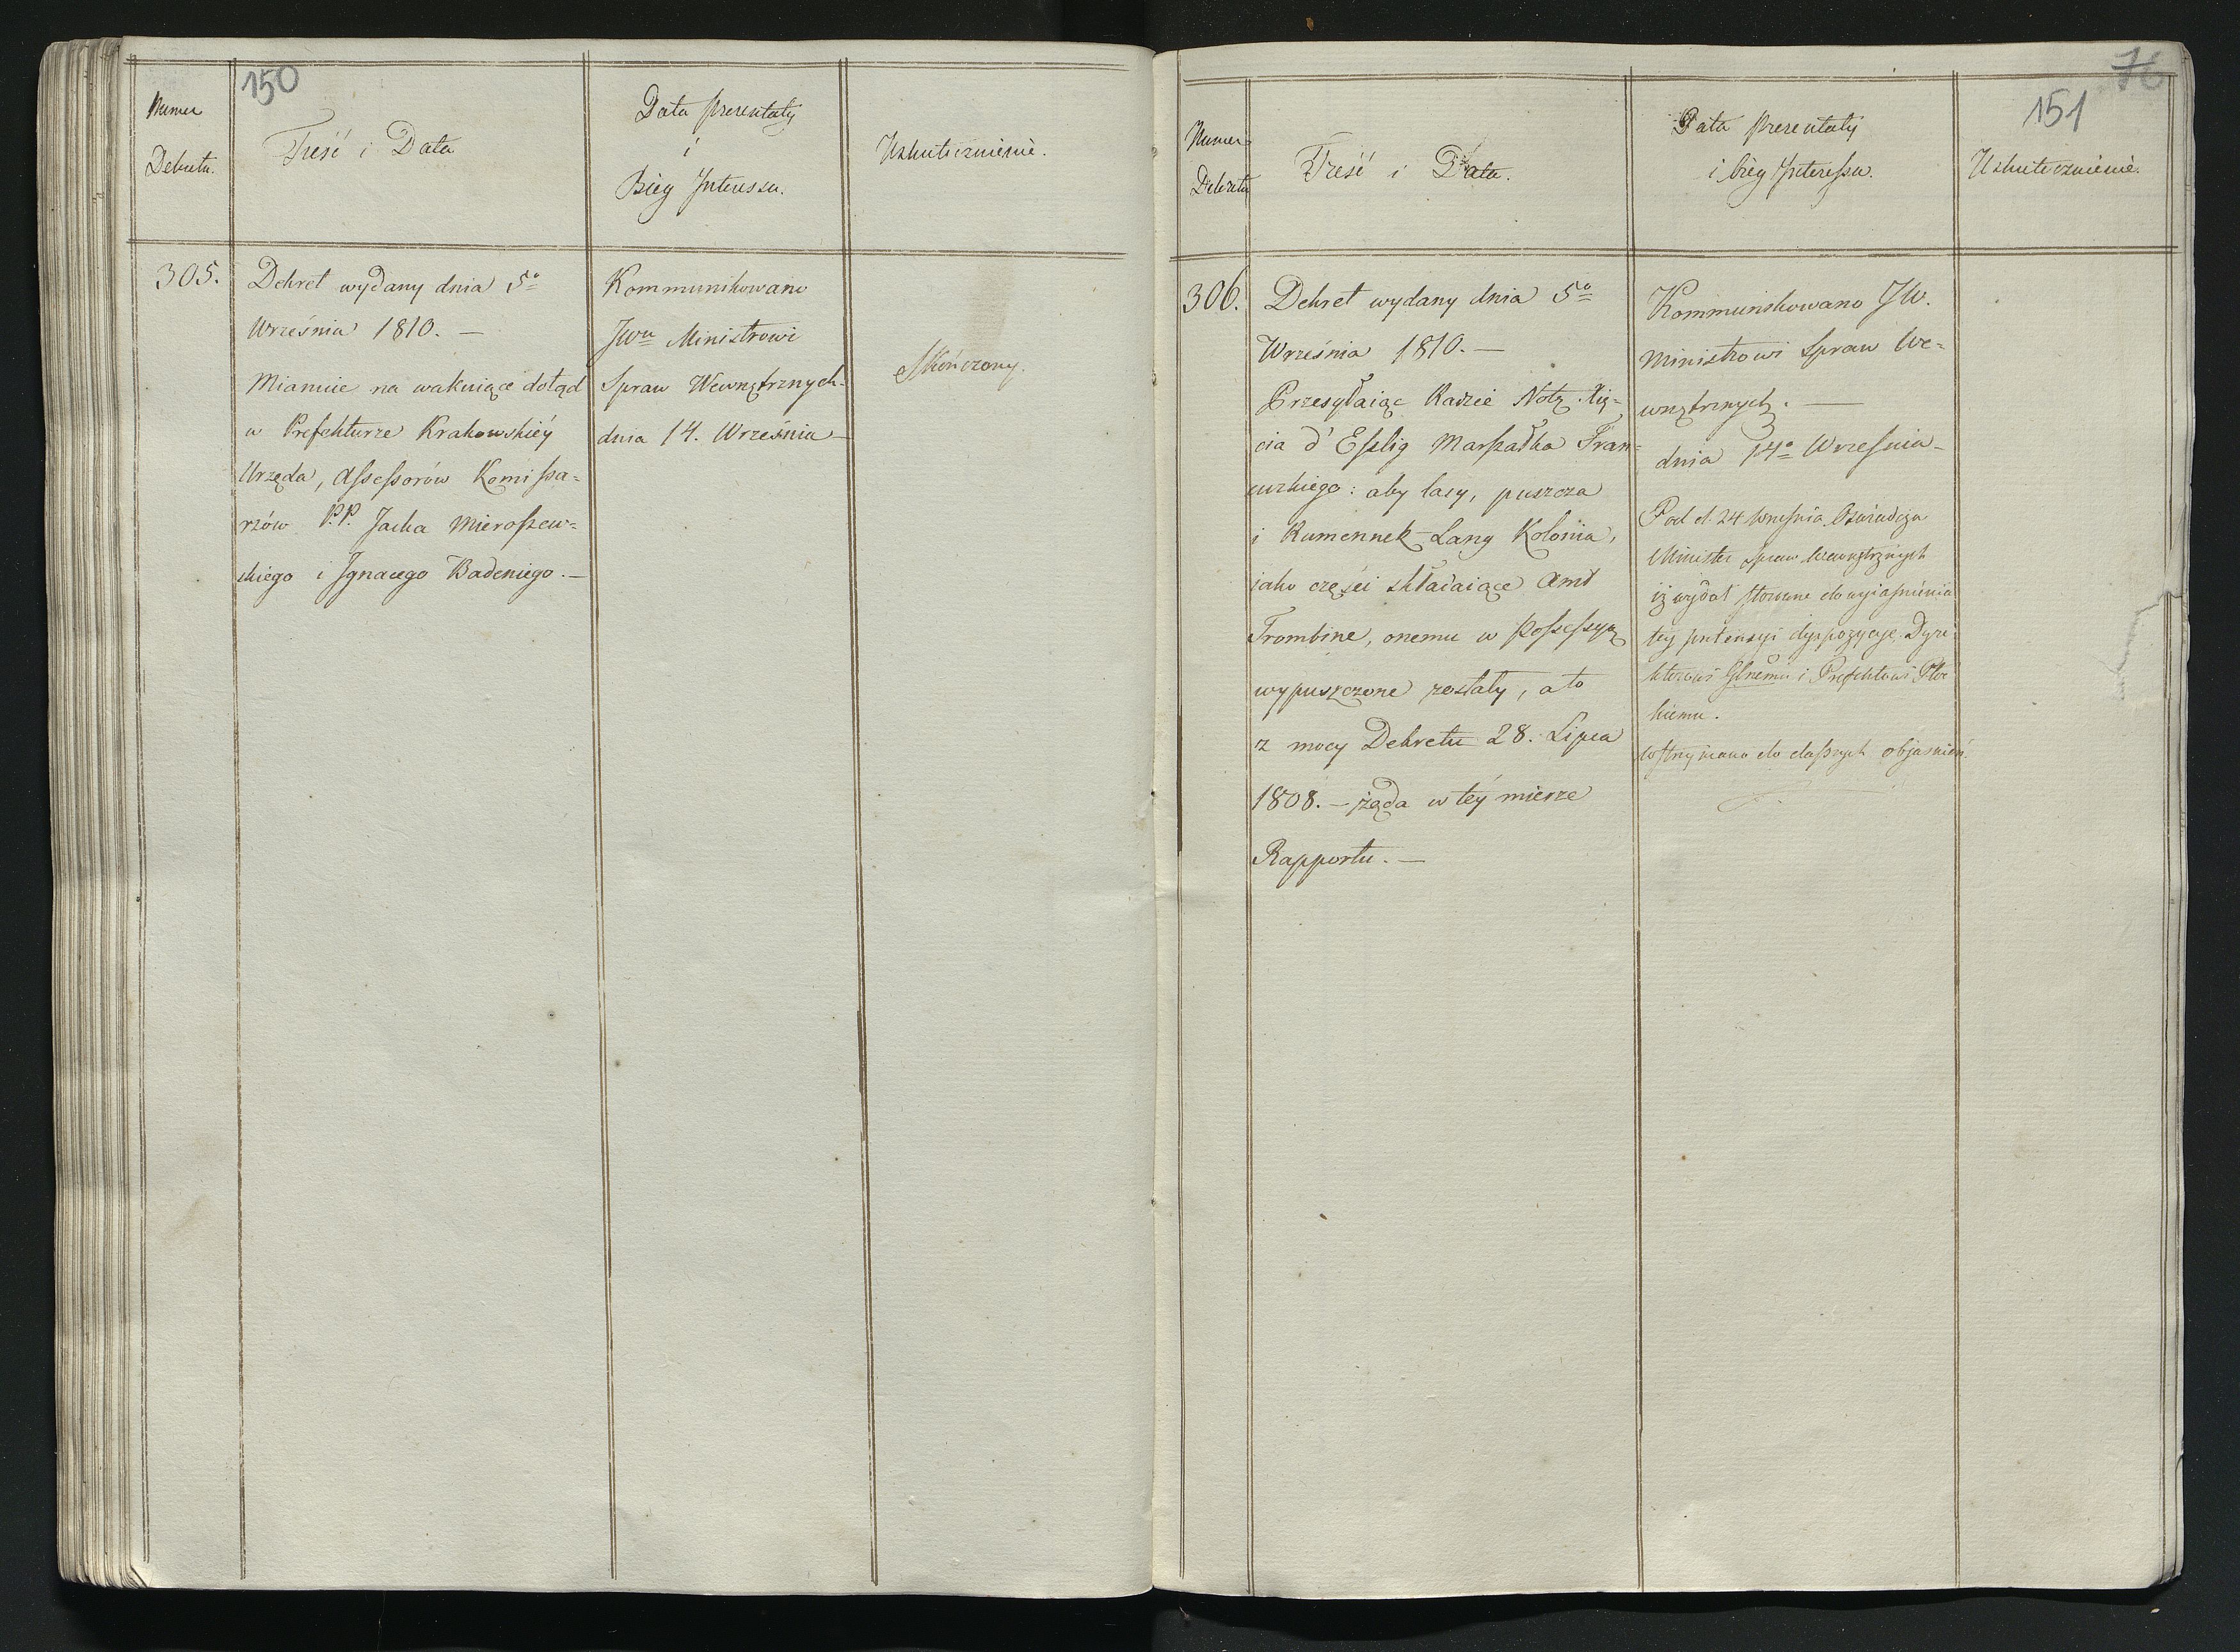 150
Numer
Dekretu.
Treść i Data
Data prezentaty
i
Bieg Interessu.
Uskutecznienie.
305.
Dekret wydany dnia 5º
Września 1810. —
Mianuie na wakuiące dotąd
w Prefekturze Krakowskiéy
Urzęda, Assessorów Komissa=
rzów P.P. Jacka Mieroszew=
skiego i Ignacego Badeniego. —
Kommunikowano
JWu Ministrowi
Spraw Wewnętrznych
dnia 14. Września —
Skończony.
76
151
Numer
Dekretu
Treść i Data.
Data prezentaty
i bieg Interessu.
Uskutecznienie.
306.
Dekret wydany dnia 5º
Września 1810. —
Przesyłaiąc Radzie Notę Xię=
cia d'Esslig Marszałka Fran=
cuzkiego: aby lasy, puszcza
i Rumennek-Lang Kolonia,
iako części składaiące Amt
Trombine, onemu w Possessyą
wypuszczone zostały, a to
z mocy Dekretu 28. Lipca
1808. — żąda w téy mierze
Rapportu. —
Kommunikowano JW.
Ministrowi Spraw We=
wnętrznych. —
dnia 14º Września —
Pod d. 24 Września Oświadcza
Minister Spraw Wewnętrznych
iż wydał stosowne do wyiaśnienia
tey pretensyi dyspozycye Dyre
ktorowi Glnemu i Prefektowi Płoc
kiemu.
Wstrzymano do dalszych objaśnień.